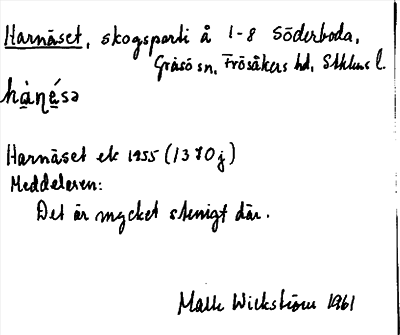 Harnäset, skogsparti å 1-8 Söderboda,
Gräsö sn, Frösåkers hd, Sthlms l.
hànésə
Harnäset ek 1955 (1370j)
Meddelaren:
Det är mycket stenigt där.
Malle Wickström 1961